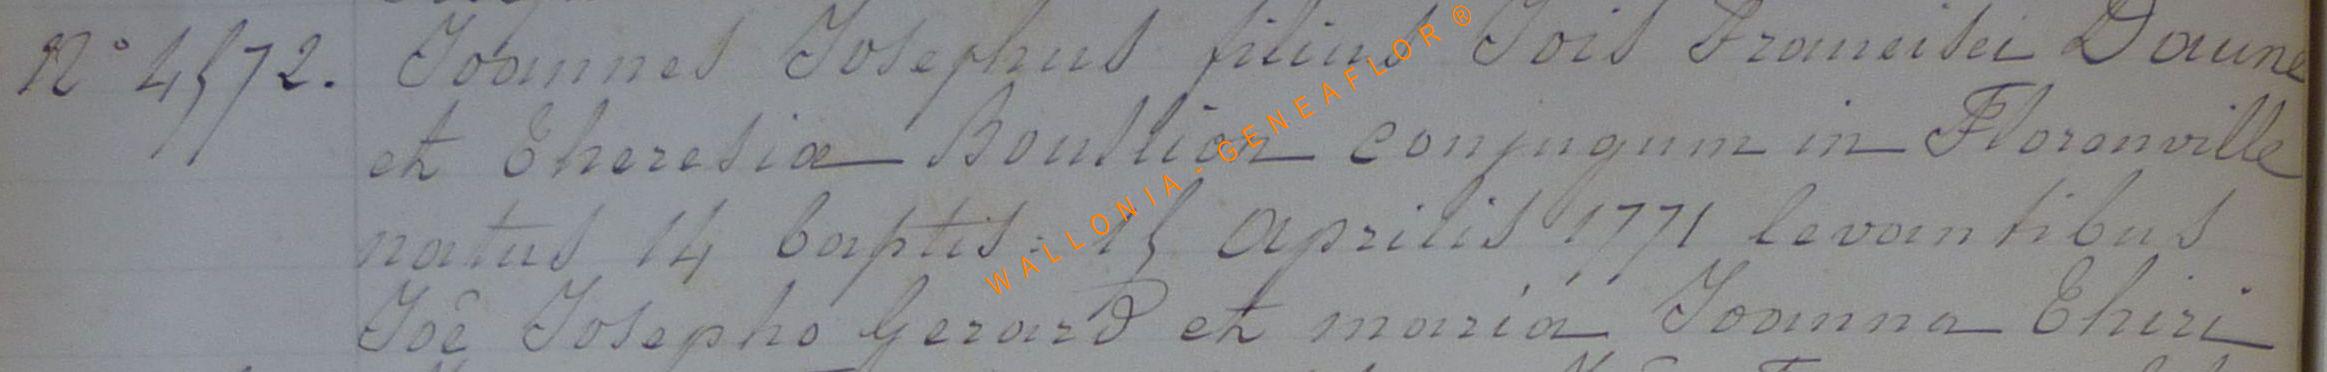 N° 4572. Joannes Josephus filius Jois Francisci Daune
et Theresiæ Boullion conjugum in Floronville
natus 14 baptis: 15 aprilis 1771 levantibus
Joê Josepho Gerard et mariá Joanna Thiri
WALLONIA-GENEAFLOR®